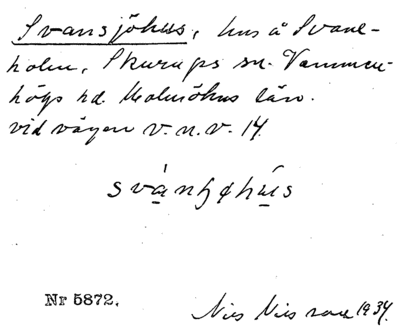 Svansjöhus, hus å Svane-
holm, Skurups sn. Vemmen-
högs hd. Malmöhus län.
vid vägen v. n. v. 14.
svánʃøhús
Nr 5872.
Nils Nilsson 1934.